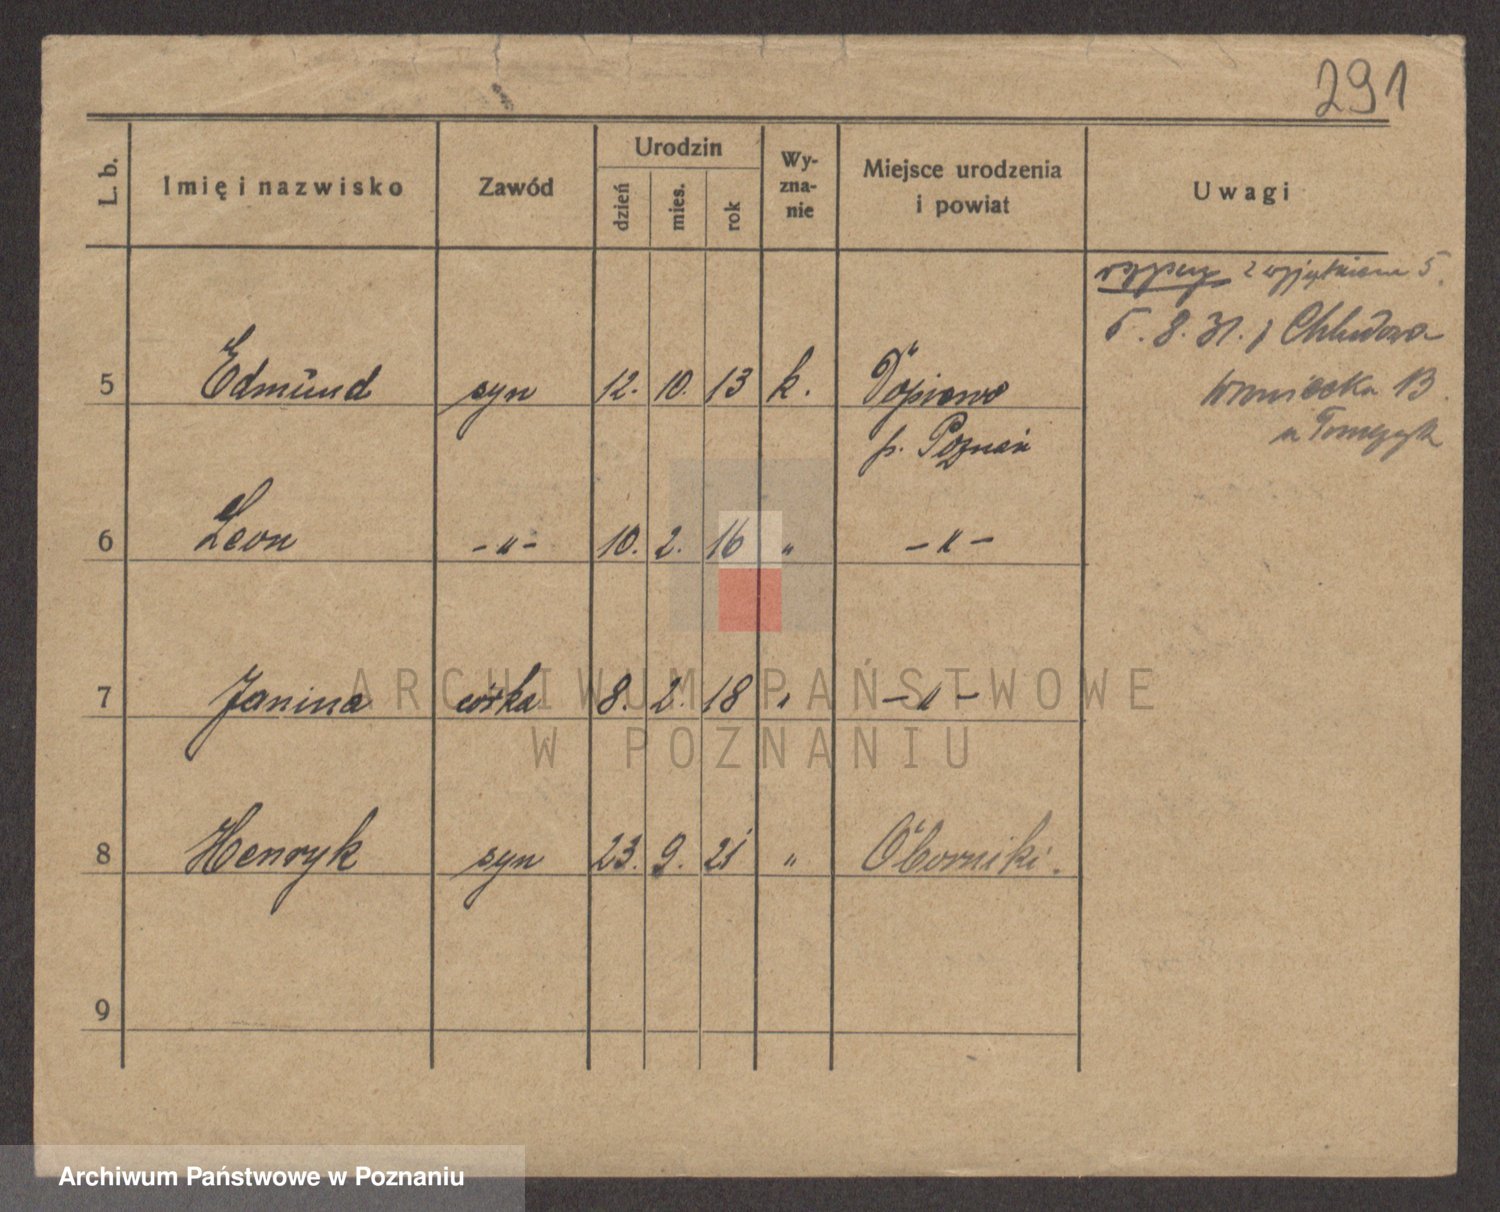 291
L. b.
Imię i nazwisko
Zawód
Urodzin
dzień
mies.
rok
Wy-
zna-
nie
Miejsce urodzenia
i powiat
Uwagi
z wyjątkiem 5.
5. 8. 31. Chludowa
5 Edmund syn 12. 10. 13 k. Dopiewo
p. Poznań
u Tomczyk
6 Leon -"- 10. 2. 16 " -"-
7 Janina córka 8. 2. 18 " -"-
8 Henryk syn 23. 9. 21 " Oborniki.
9
ARCHIWUM PAŃSTWOWE
W POZNANIU
Archiwum Państwowe w Poznaniu